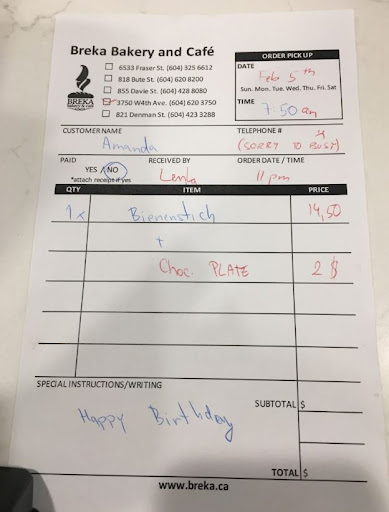 Breka Bakery and Café
6533 Fraser St. (604) 325 6612
818 Bute St. (604) 620 8200
855 Davie St. (604) 428 8080
3750 W4th Ave. (604) 620 3750
821 Denman St. (604) 423 3288
BREKA
bakery & café
ORDER PICK UP
DATE
Feb 5th
Sun. Mon. Tue. Wed. Thu. Fri. Sat
TIME 7:50 am
CUSTOMER NAME
Amanda
TELEPHONE #
(SORRY TO BUSY)
PAID
YES / NO
*attach receipt if yes
RECEIVED BY
ORDER DATE / TIME
11 pm
QTY ITEM PRICE
1x Bienenstich 14,50
+
Choc. PLATE 2 $
SPECIAL INSTRUCTIONS/WRITING
Happy Birthday
SUBTOTAL $
TOTAL $
www.breka.ca